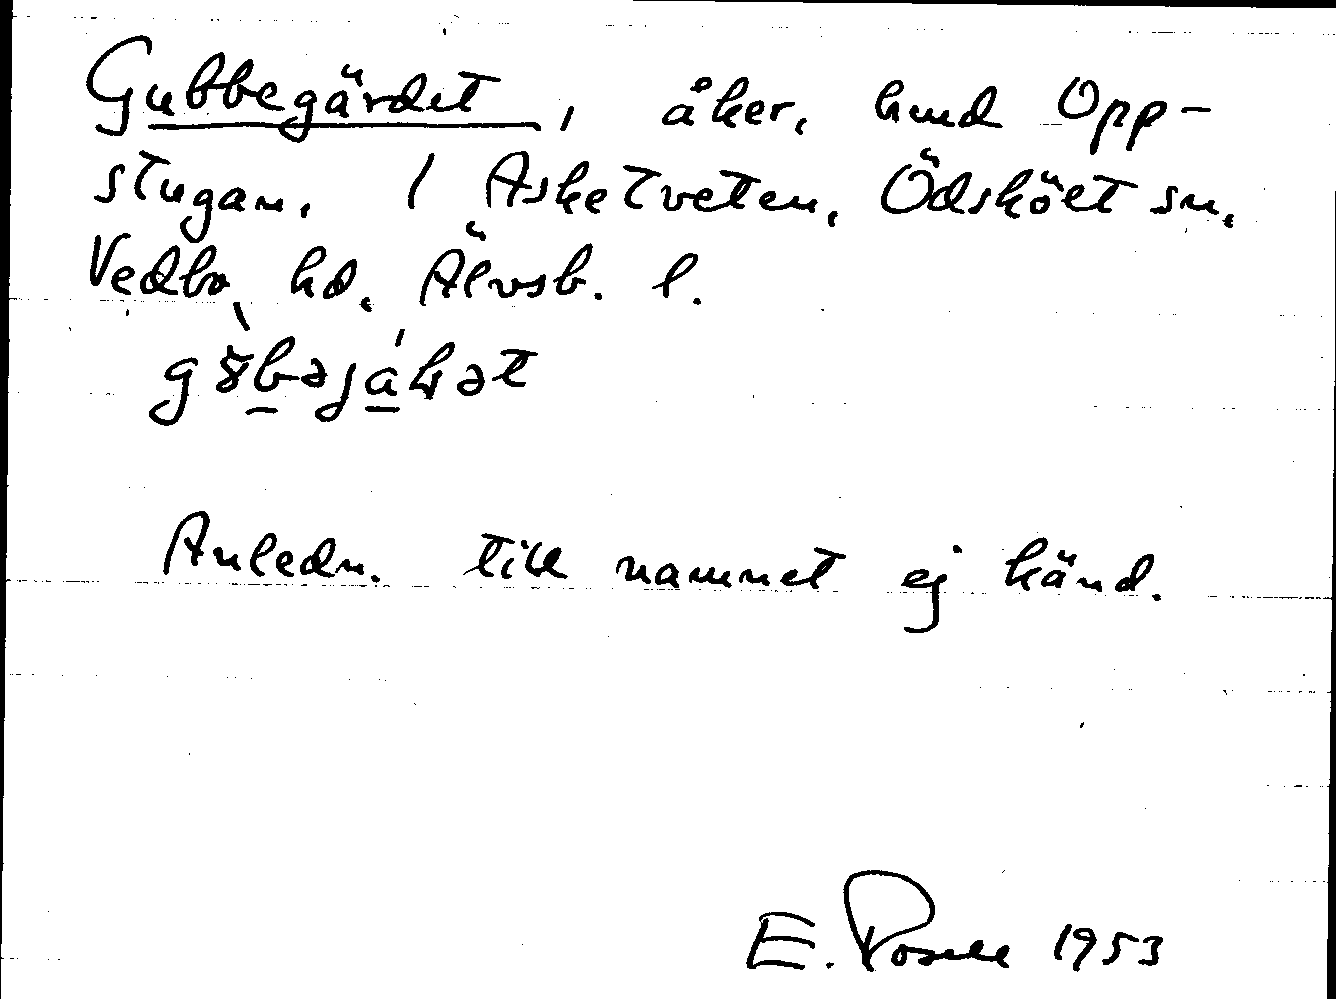 Gubbegärdet, åker, hmd Opp-
stugan, 1 Asketveten, Ödsköet sn,
Vedbo hd, Älvsb. l.
Anledn. till namnet ej känd.
E. 1953